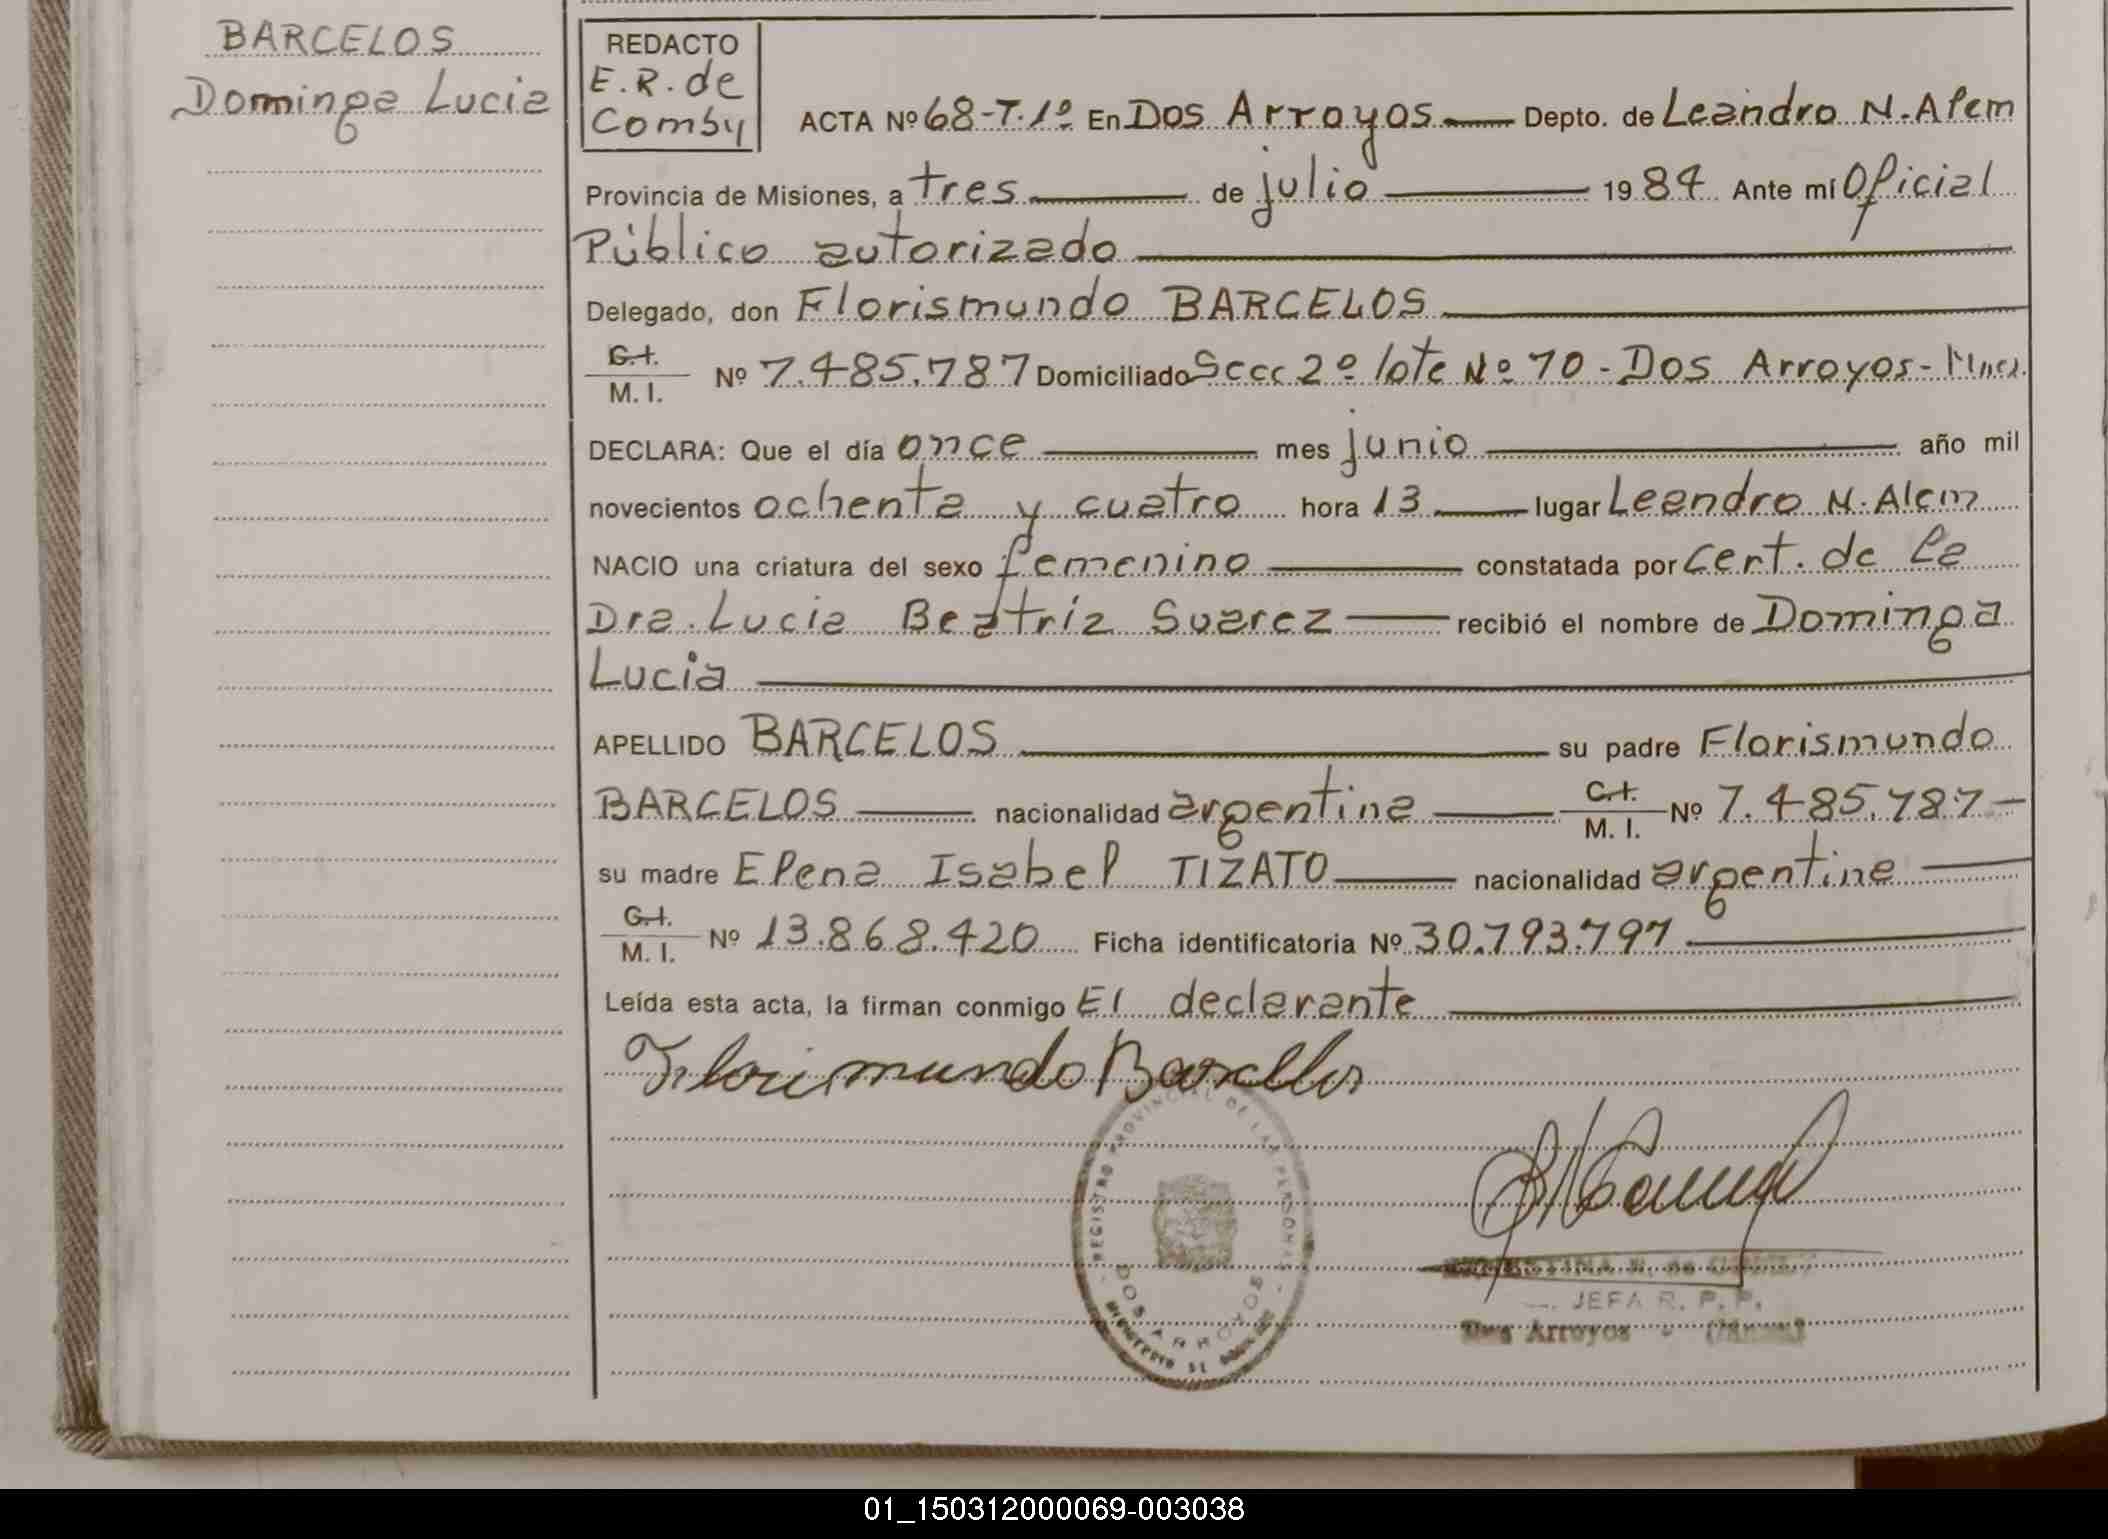 BARCELOS
Dominga Lucia
REDACTO
E.R. de
Comby
ACTA Nº 68-T.1º En Dos Arroyos Depto. de Leandro N. Alem
Provincia de Misiones, a tres de julio 1984 Ante mí Oficial
Público autorizado
Delegado, don Florismundo BARCELOS
C.I.
M. I. Nº 7.485.787 Domiciliado Secc 2º lote Nº 70 - Dos Arroyos -
DECLARA: Que el día once mes junio año mil
novecientos ochenta y cuatro hora 13 lugar Leandro N. Alem
NACIO una criatura del sexo femenino constatada por Cert. de la
Dra. Lucia Beatriz Suarez recibió el nombre de Dominga
Lucia
APELLIDO BARCELOS su padre Florismundo
BARCELOS nacionalidad argentina C.I. M. I. Nº 7.485.787
su madre Elena Isabel TIZATO nacionalidad argentina
C.I.
M. I. Nº 13.868.420 Ficha identificatoria Nº 30.793.797
Leída esta acta, la firman conmigo El declarante
Florismundo Barcellos
REGISTRO PROVINCIAL DE LAS PERSONAS
DOS ARROYOS
JEFA R. P. P.
Dos Arroyos
01_150312000069-003038